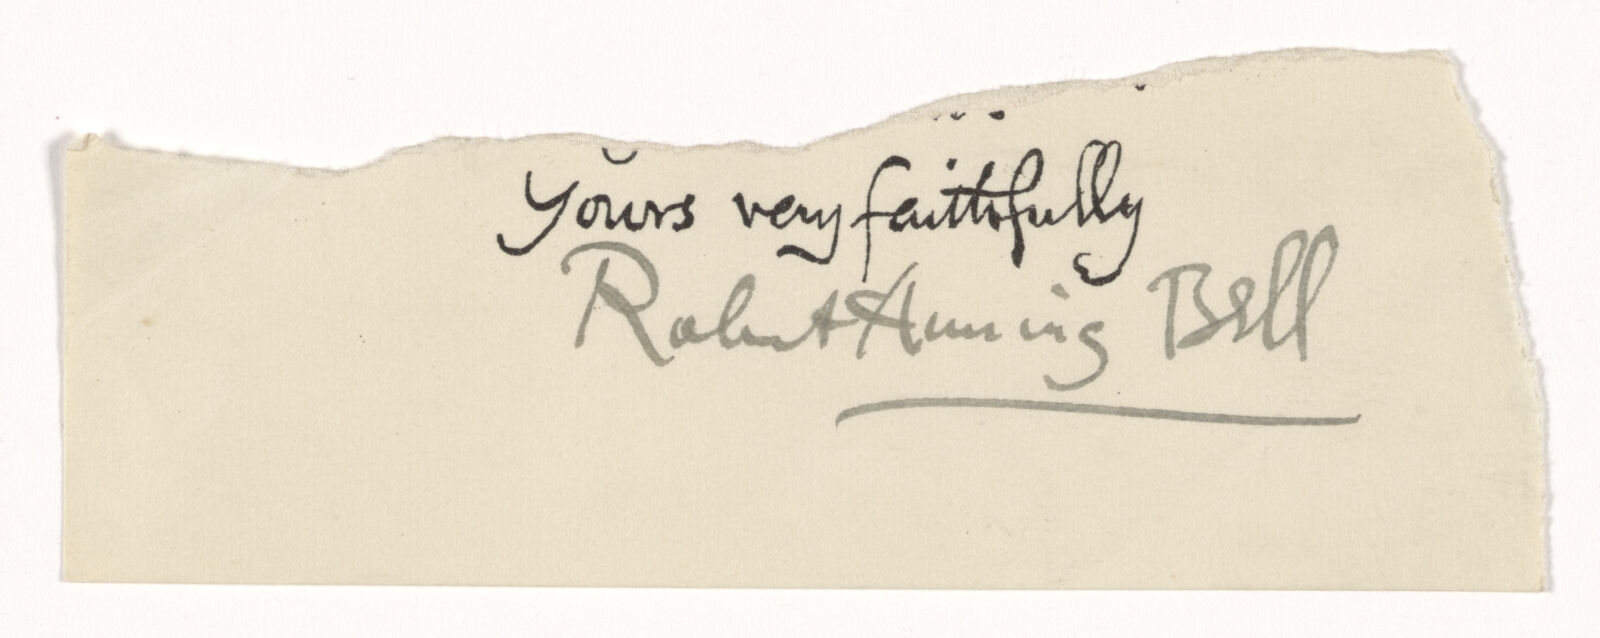 Yours very faithfully
Robert Anning Bell